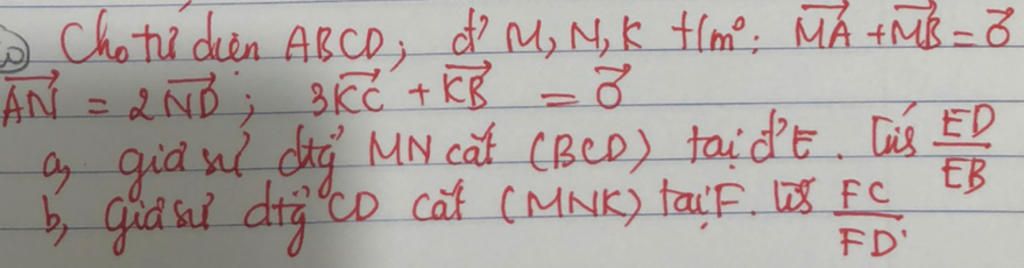 Cho tứ diện ABCD; đ' M, N, K t/m°: \overrightarrow{MA} + \overrightarrow{MB} = \vec{0}
\overrightarrow{AN} = 2\overrightarrow{ND}; 3\overrightarrow{KC} + \overrightarrow{KB} = \vec{0}
a, giả sử đtg MN cắt (BCD) tại đ' E. Tỉ số \frac{ED}{EB}
b, Giả sử đtg CD cắt (MNK) tại F. tỉ số \frac{FC}{FD}